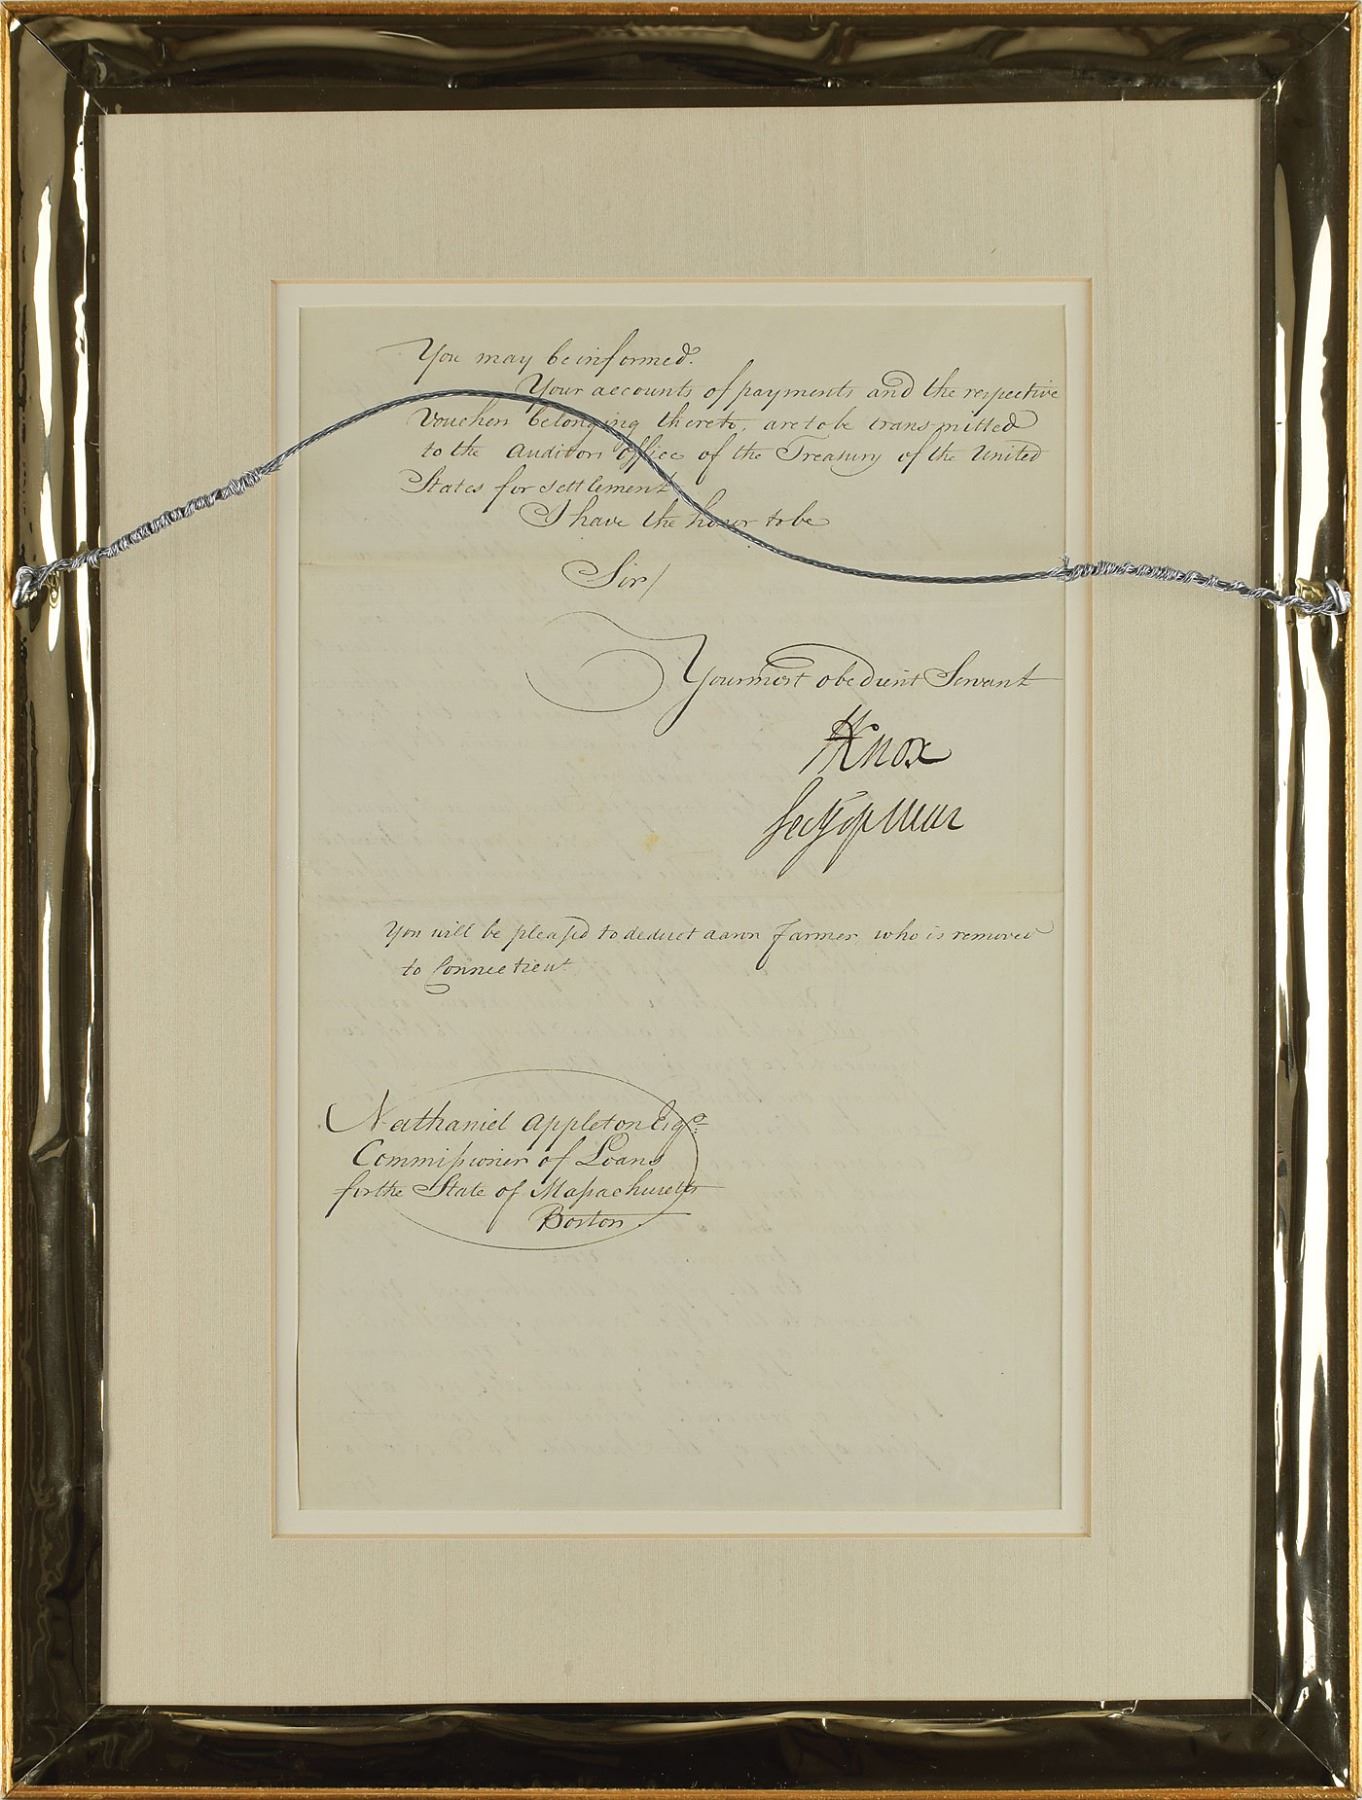 You may be informed.
Your accounts of payments and the respective
Vouchers belonging thereto, are to be transmitted
to the Auditors office of the Treasury of the United
States for settlement
I have the honor to be
Sir/
Your most obedient Servant
HKnox
Secy of War
You will be pleased to deduct Aaron Farmer who is removed
to Connecticut
Nathaniel Appleton Esqr.
Commissioner of Loans
for the State of Massachusetts
Boston.